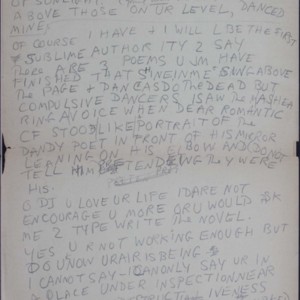 OF SUNLIGHT
ABOVE THOSE ON UR LEVEL, DANCED
MINE,
OF COURSE I HAVE + I WILL BE THE FIRST
SUBLIME AUTHORITY 2 SAY
THERE ARE 3 POEMS U JM HAVE
FINISHED THAT SUNG ABOVE
THE PAGE + DANC AS DO THE DEAD BUT
COMPULSIVE DANCERS. I SAW THE HASHEA
RING A VOICE WHEN DEAR ROMANTIC
CF STOOD LIKE PORTRAIT OF
DANDY POET IN FRONT OF HIS MIRROR
LEANING ON HIS ELBOW AND DONT
TELL HIM PRETENDING THEY WERE
HIS.
DJ U LOVE UR LIFE I DARE NOT
ENCOURAGE U MORE OR U WOULD ASK
ME 2 TYPE WRITE THE NOVEL.
YES U R NOT WORKING ENOUGH BUT
DO U NOW UR AIR IS BEING
I CANNOT SAY - I CAN ONLY SAY UR IN
A PLACE UNDER INSPECTION NEAR
LIVENESS